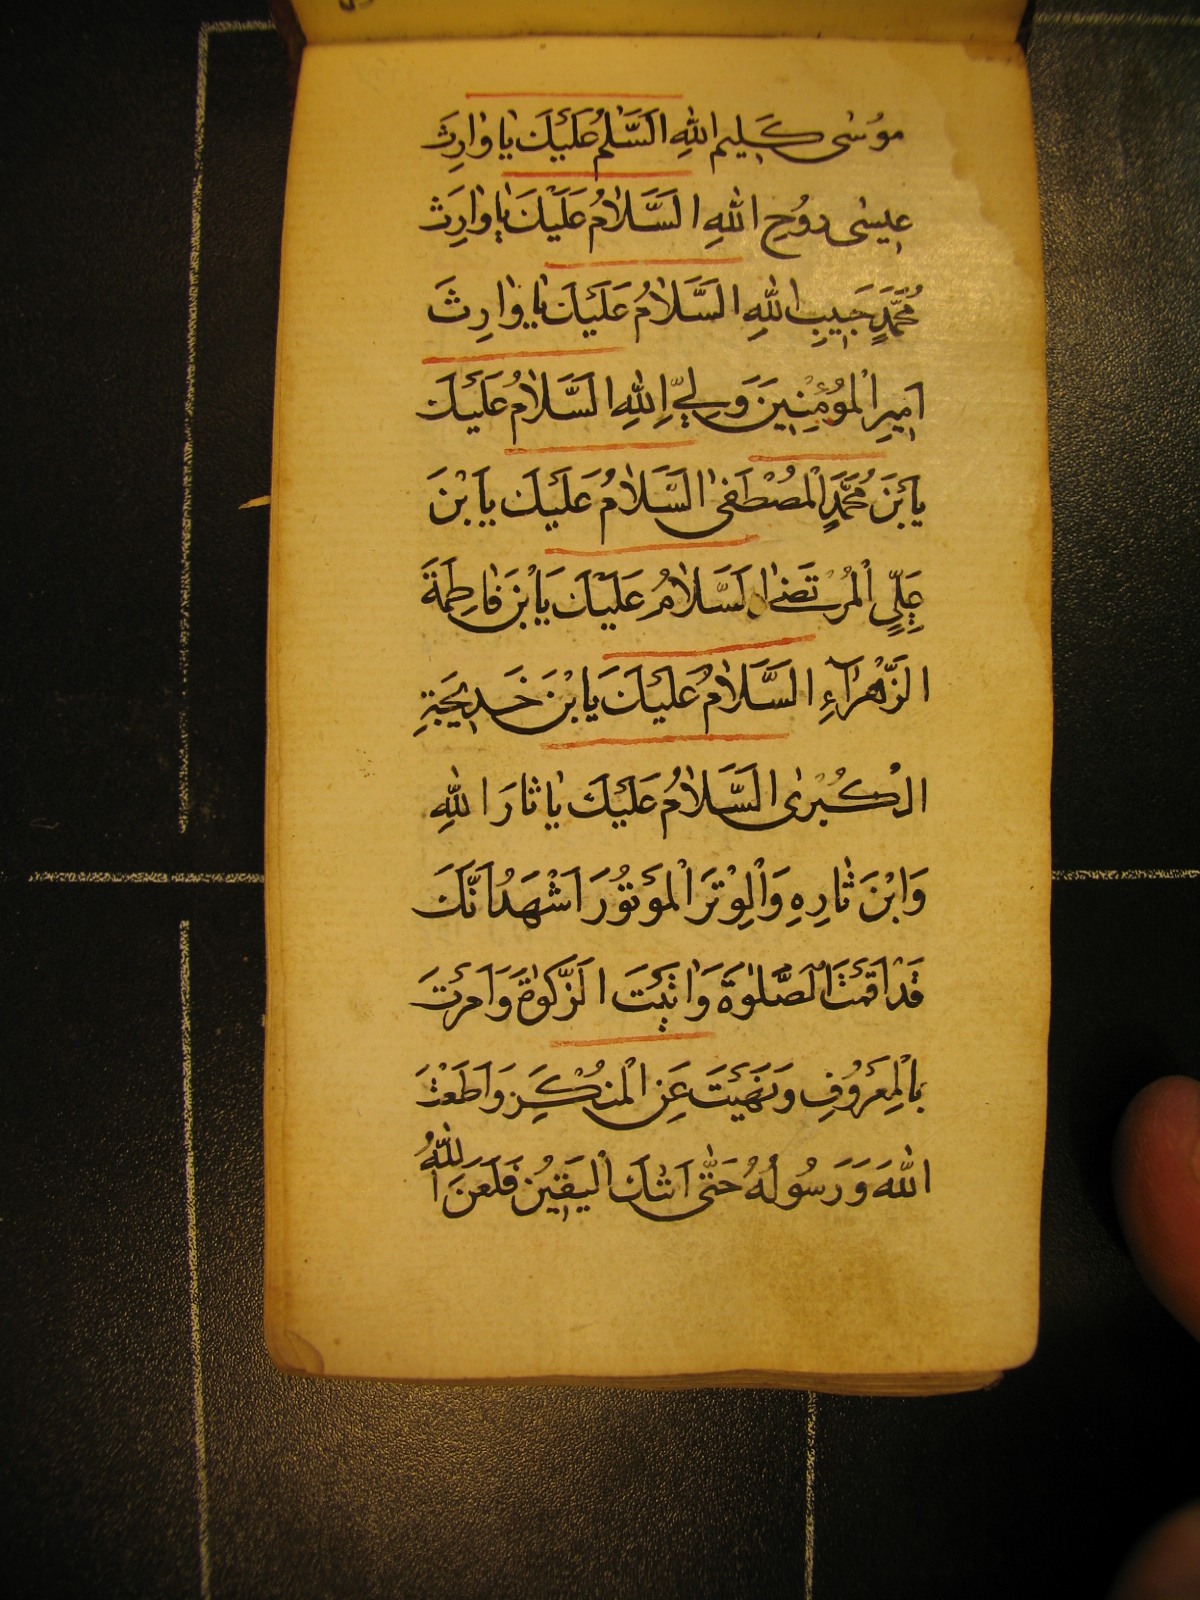 مُوسٰى كَلِيمِ اللّٰهِ اَلسَّلٰمُ عَلَيْكَ يٰا وٰارِثَ
عِيسٰى رُوحِ اللّٰهِ اَلسَّلٰامُ عَلَيْكَ يٰا وٰارِثَ
مُحَمَّدٍ حَبِيبِ اللّٰهِ اَلسَّلٰامُ عَلَيْكَ يٰا وٰارِثَ
اَمِيرِ الْمُؤْمِنِينَ وَلِيِّ اللّٰهِ اَلسَّلٰامُ عَلَيْكَ
يَابْنَ مُحَمَّدٍ الْمُصْطَفٰى اَلسَّلٰامُ عَلَيْكَ يَابْنَ
عَلِيٍّ الْمُرْتَضٰى اَلسَّلٰامُ عَلَيْكَ يَابْنَ فٰاطِمَةَ
الزَّهْرَآءِ اَلسَّلٰامُ عَلَيْكَ يَابْنَ خَدِيجَةِ
الْكُبْرٰى اَلسَّلٰامُ عَلَيْكَ يٰا ثٰارَ اللّٰهِ
وَابْنَ ثٰارِهِ وَالْوِتْرَ الْمَوْتُورَ اَشْهَدُ اَنَّكَ
قَدْ اَقَمْتَ الصَّلٰوةَ وَاٰتَيْتَ الزَّكٰوةَ وَاَمَرْتَ
بِالْمَعْرُوفِ وَنَهَيْتَ عَنِ الْمُنْكَرِ وَاَطَعْتَ
اللّٰهَ وَرَسُولَهُ حَتّٰى اَتٰكَ الْيَقِينُ فَلَعَنَ اللّٰهُ